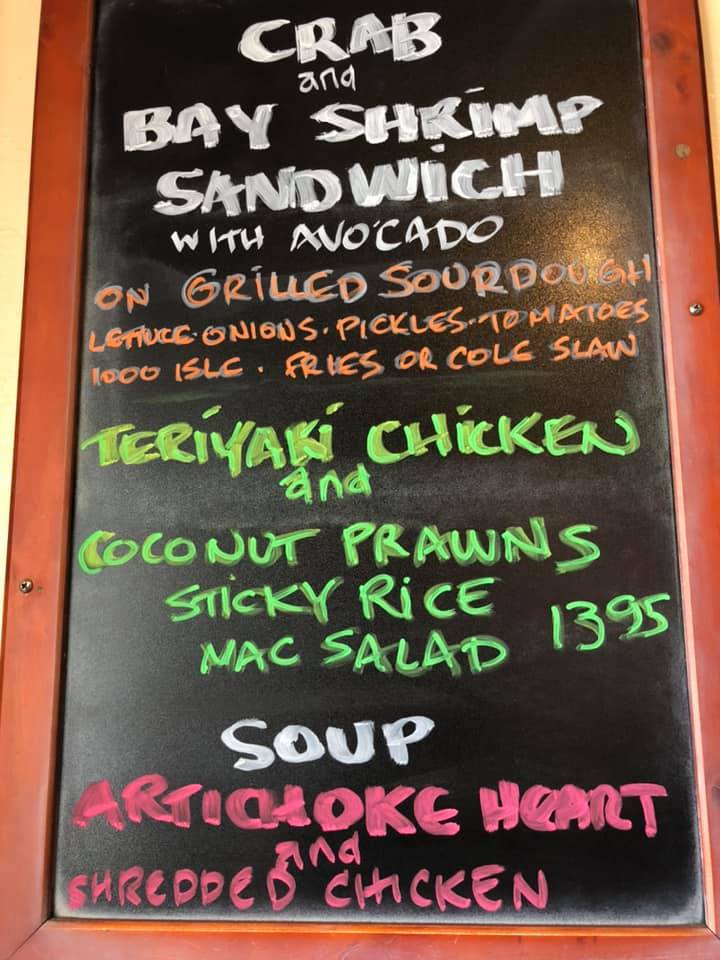 CRAB
and
BAY SHRIMP
SANDWICH
WITH AVOCADO
ON GRILLED SOURDOUGH
LETTUCE · ONIONS · PICKLES · TOMATOES
1000 ISLE · FRIES OR COLE SLAW
TERIYAKI CHICKEN
and
COCONUT PRAWNS
STICKY RICE
MAC SALAD 1395
SOUP
ARTICHOKE HEART
and
SHREDDED CHICKEN